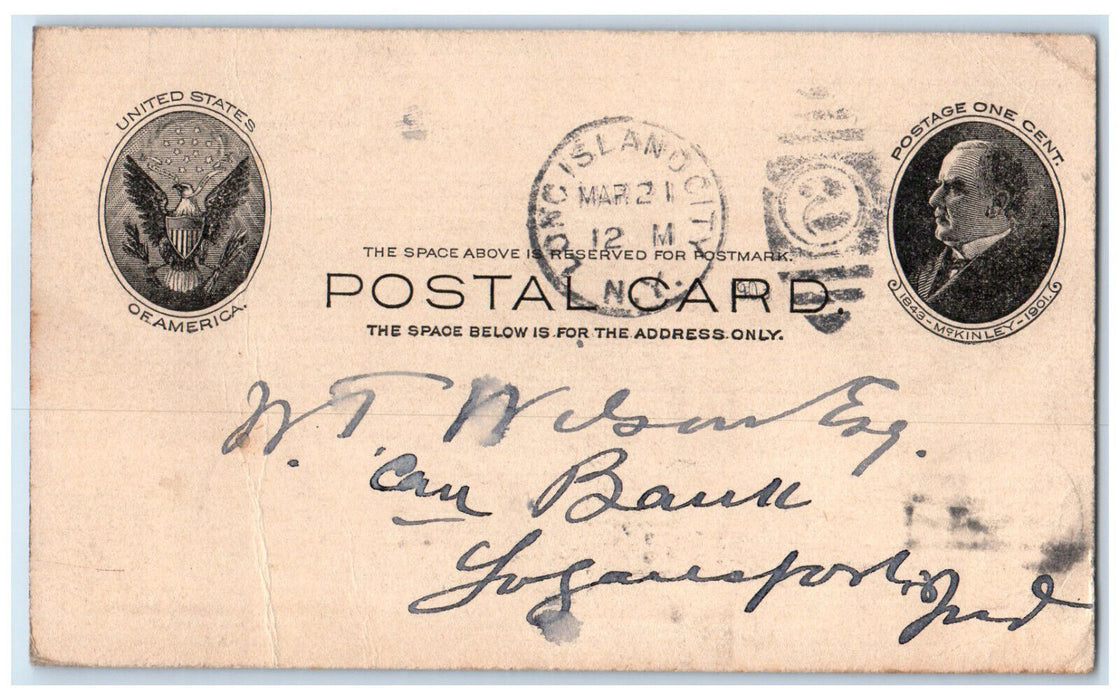 UNITED STATES
OF AMERICA.
LONG ISLAND CITY
MAR 21
12 M
N.Y.
2
POSTAGE ONE CENT.
1843-McKINLEY-1901.
THE SPACE ABOVE IS RESERVED FOR POSTMARK.
POSTAL CARD.
THE SPACE BELOW IS FOR THE ADDRESS ONLY.
W. T Wilson Esq.
Can Bank
Logansport, Ind